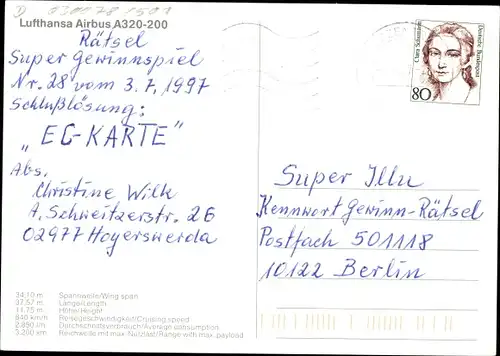 Lufthansa Airbus A320-200
Rätsel
Super Gewinnspiel
Nr. 28 vom 3.7.1997
Schlußlösung:
„EC-KARTE"
Abs.
Christine Wilk
A. Schweitzerstr. 26
02977 Hoyerswerda
34,10 m Spannweite/Wing span
37,57 m Länge/Length
11,75 m Höhe/Height
840 km/h Reisegeschwindigkeit/Cruising speed
2.850 l/h Durchschnittsverbrauch/Average consumption
3.200 km Reichweite mit max. Nutzlast/Range with max. payload
Clara Schumann
Deutsche Bundespost
80
Super Illu
Kennwort Gewinn-Rätsel
Postfach 501118
10122 Berlin